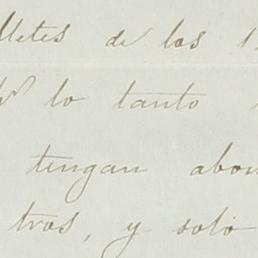 lletes de los
lo tanto
tengan abon
tros, y solo